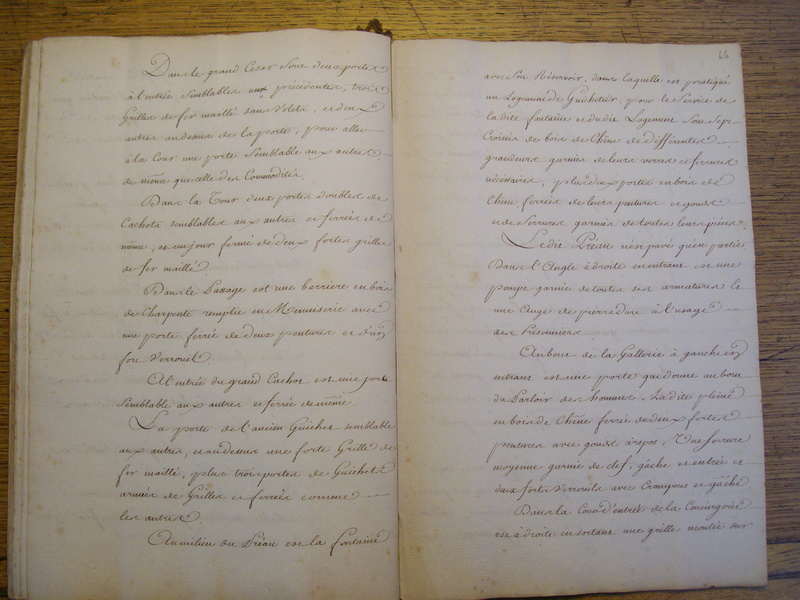 Dans le grand Cesar sont deux portes
à l'entrée semblables aux précédentes, trois
Grilles de fer maillé sans Volets, et deux
autres au dessus de la porte, pour aller
à la Cour une porte semblable aux autres
de même que celle des Commodités.
Dans la Tour deux portes doubles de
Cachots semblables aux autres et ferrées de
même, et un jour fermé de deux fortes grilles
de fer maillé.
Dans le Passage est une barriere en bois
de Charpente remplie en Menuiserie avec
une porte ferrée de deux pentures et d'un
fort Verrouil
A l'entrée du grand Cachot est une porte
semblable aux autres et ferrée de même.
La porte de l'ancien Guichet semblable
aux autres, et au dessus une forte Grille de
fer maillé, plus trois portes de Guichets
armées de Grilles et ferrées comme
les autres.
Au milieu du Préau est la fontaine
46
avec son Réservoir, dans laquelle est pratiqué
un Logement de Guichetier, pour le Service de
la dite fontaine et du dit Logement sont sept
Croisées de bois de Chêne de différentes
grandeurs garnies de leurs verres et ferrures
nécessaires, plus deux portes en bois de
Chêne, ferrées de leurs pentures et gonds
et de Serrures garnies de toutes leurs pieces.
Le dit Préau n'est pavé qu'en partie
Dans l'Angle à droite en entrant est une
pompe garnie de toutes ses armatures Et
une Auge de pierre dure à l'usage
des Prisonniers
Au bout de la Gallerie à gauche en
entrant est une porte qui donne au bout
du Parloir des hommes. La dite pleine
en bois de Chêne ferrée de deux fortes
pentures avec gonds à repos, Une serrure
moyenne garnie de clef, gâche et entrée et
deux forts Verrouils avec Crampons et gâche
Dans la Cour d'entrée de la Conciergerie
est à droite en sortant une grille montée sur